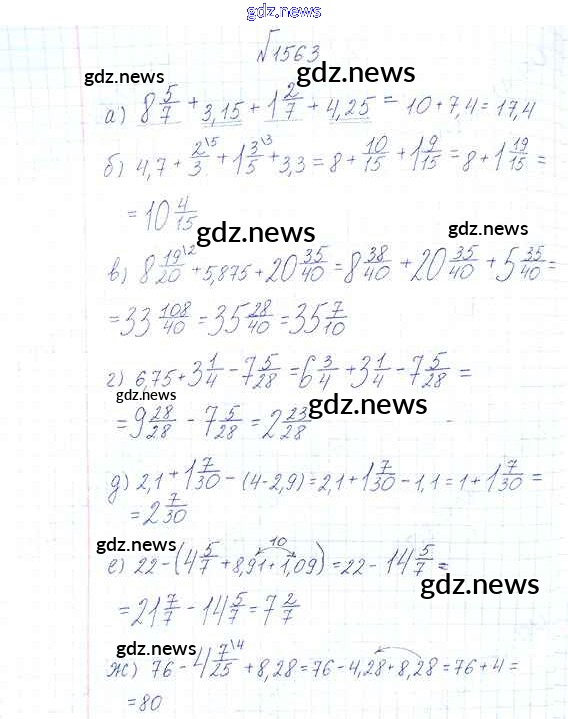 gdz.news
№1563
gdz.news gdz.news
а) 8 5/7 + 3,15 + 1 2/7 + 4,25 = 10 + 7,4 = 17,4
б) 4,7 + 2\5/3 + 1 3\3/5 + 3,3 = 8 + 10/15 + 1 9/15 = 8 + 1 19/15 =
= 10 4/15
gdz.news gdz.news
в) 8 19\2/20 + 5,875 + 20 35/40 = 8 38/40 + 20 35/40 + 5 35/40 =
= 33 108/40 = 35 28/40 = 35 7/10
г) 6,75 + 3 1/4 - 7 5/28 = 6 3/4 + 3 1/4 - 7 5/28 =
gdz.news gdz.news
= 9 28/28 - 7 5/28 = 2 23/28
д) 2,1 + 1 7/30 - (4 - 2,9) = 2,1 + 1 7/30 - 1,1 = 1 + 1 7/30 =
= 2 7/30
gdz.news 10
е) 22 - (4 5/7 + 8,91 + 1,09) = 22 - 14 5/7 =
gdz.news
= 21 7/7 - 14 5/7 = 7 2/7
gdz.news
ж) 76 - 4 7\4/25 + 8,28 = 76 - 4,28 + 8,28 = 76 + 4 =
= 80
gdz.news